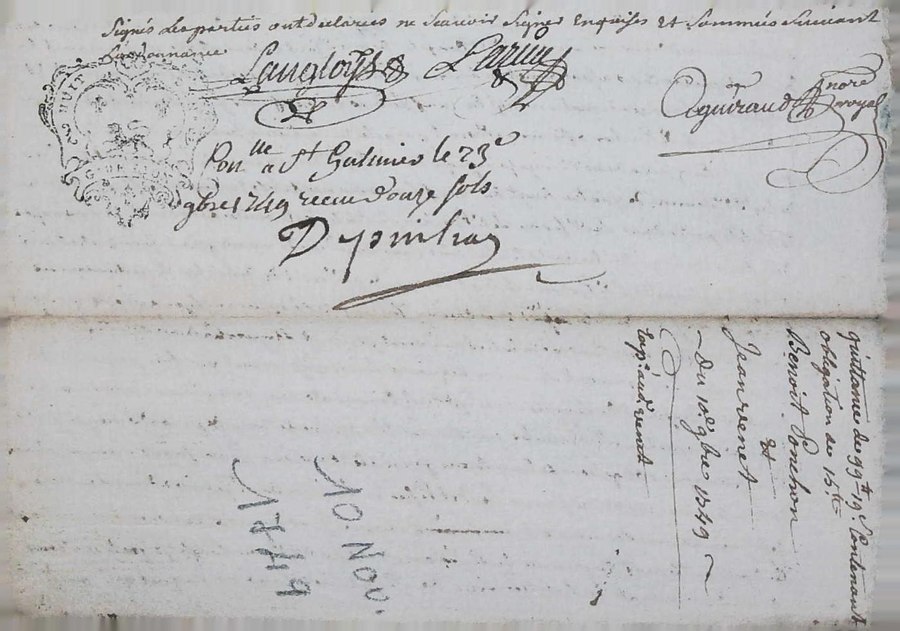 Signés Les parties ont declarées ne Scavoir Signer Enquises Et Sommés Suivant
Lordonnance
Langloys Larue
Aguiraud Nore royal
Con lle a St Galmier le 23e
9bre 1749 receu douze sols
Depinhac
quittance de 99 tt 19 s Contenant
obligation de 15 tt
Benoit Ponchon
Et
Jean venet
du 10e 9bre 1749
Exp. aud. venet
10 Nov.
1749